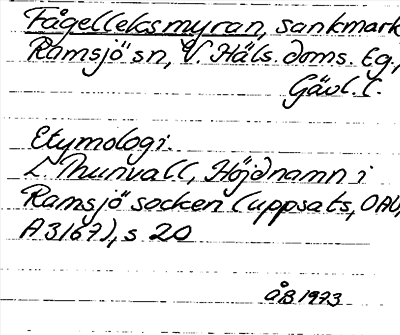 Fågelleksmyran, sankmark
Ramsjö sn, V. Häls. doms. tg.,
Gävl. l.
Etymologi.
L. Thunvall, Höjdnamn i
Ramsjö socken (uppsats, OAU,
A 3167), s 20
ÅB 1973